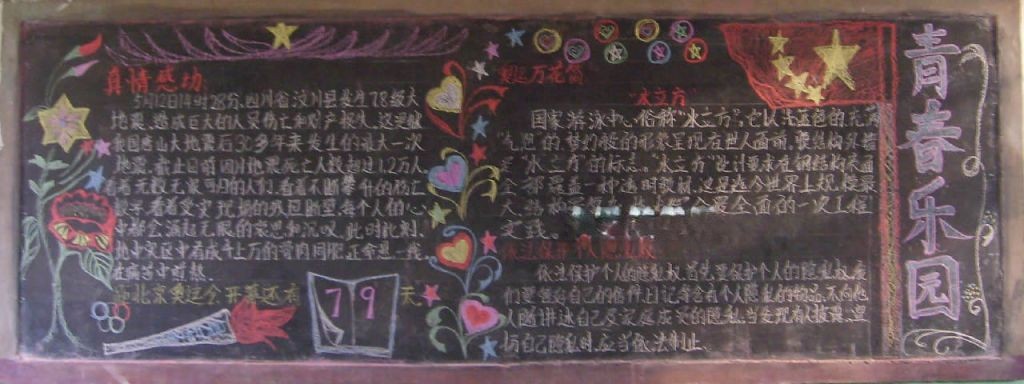 真情感动
5月12日14时28分,四川省汶川县发生7.8级大
地震,造成巨大的人员伤亡和财产损失,这是继
我国唐山大地震后30多年来发生的最大一次
地震,截止日前因此地震死亡人数超过1.2万人
看着无数无家可归的人们,看着不断攀升的伤亡
数字,看着受灾现场的残垣断壁,每个人的心
中都会涌起无限的哀思和沉叹,此时此刻,
地中灾区中有成千上万的骨肉同胞,正牵悬一线
在痛苦中
距北京奥运会开幕还有 79 天
奥运万花筒
“水立方”
国家游泳中心,俗称“水立方”,它以湛蓝色的充满
气泡的,梦幻般的形象呈现在世人面前,
“水立方”的标志。“水立方”设计要求在钢结构表面
全部覆盖一种透明膜材,这是迄今世界上规模最
大,最全面的一次工程
实践。
依法保护个人隐私权
依法保护个人的隐私权,首先要保护个人的隐私权,我
们要保管好自己的信件,日记等含有个人隐私的物品,不向他
人随讲述自己及家庭成员的隐私,当发现有人披露,
自己隐私时,应当依法制止。
青春乐园